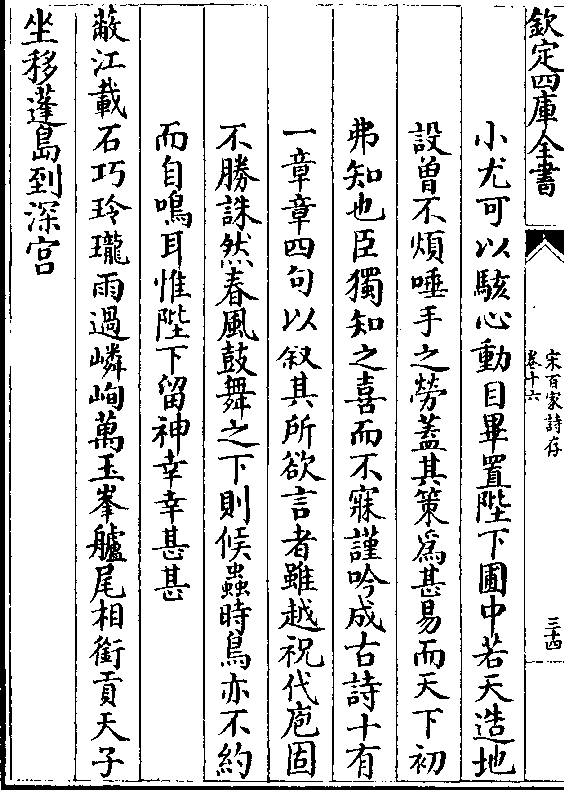 欽定四庫全書
宋百家詩存
卷十六
三十四
小尤可以駭心動目畢置陛下圃中若天造地
設曾不煩唾手之勞蓋其策為甚易而天下初
弗知也臣獨知之喜而不寐謹吟成古詩十有
一章章四句以叙其所欲言者雖越祝代庖固
不勝誅然春風鼓舞之下則候蟲時鳥亦不約
而自鳴耳惟陛下留神幸幸甚甚
蔽江載石巧玲瓏雨過嶙峋萬玉峯艫尾相銜貢天子
坐移蓬島到深宫